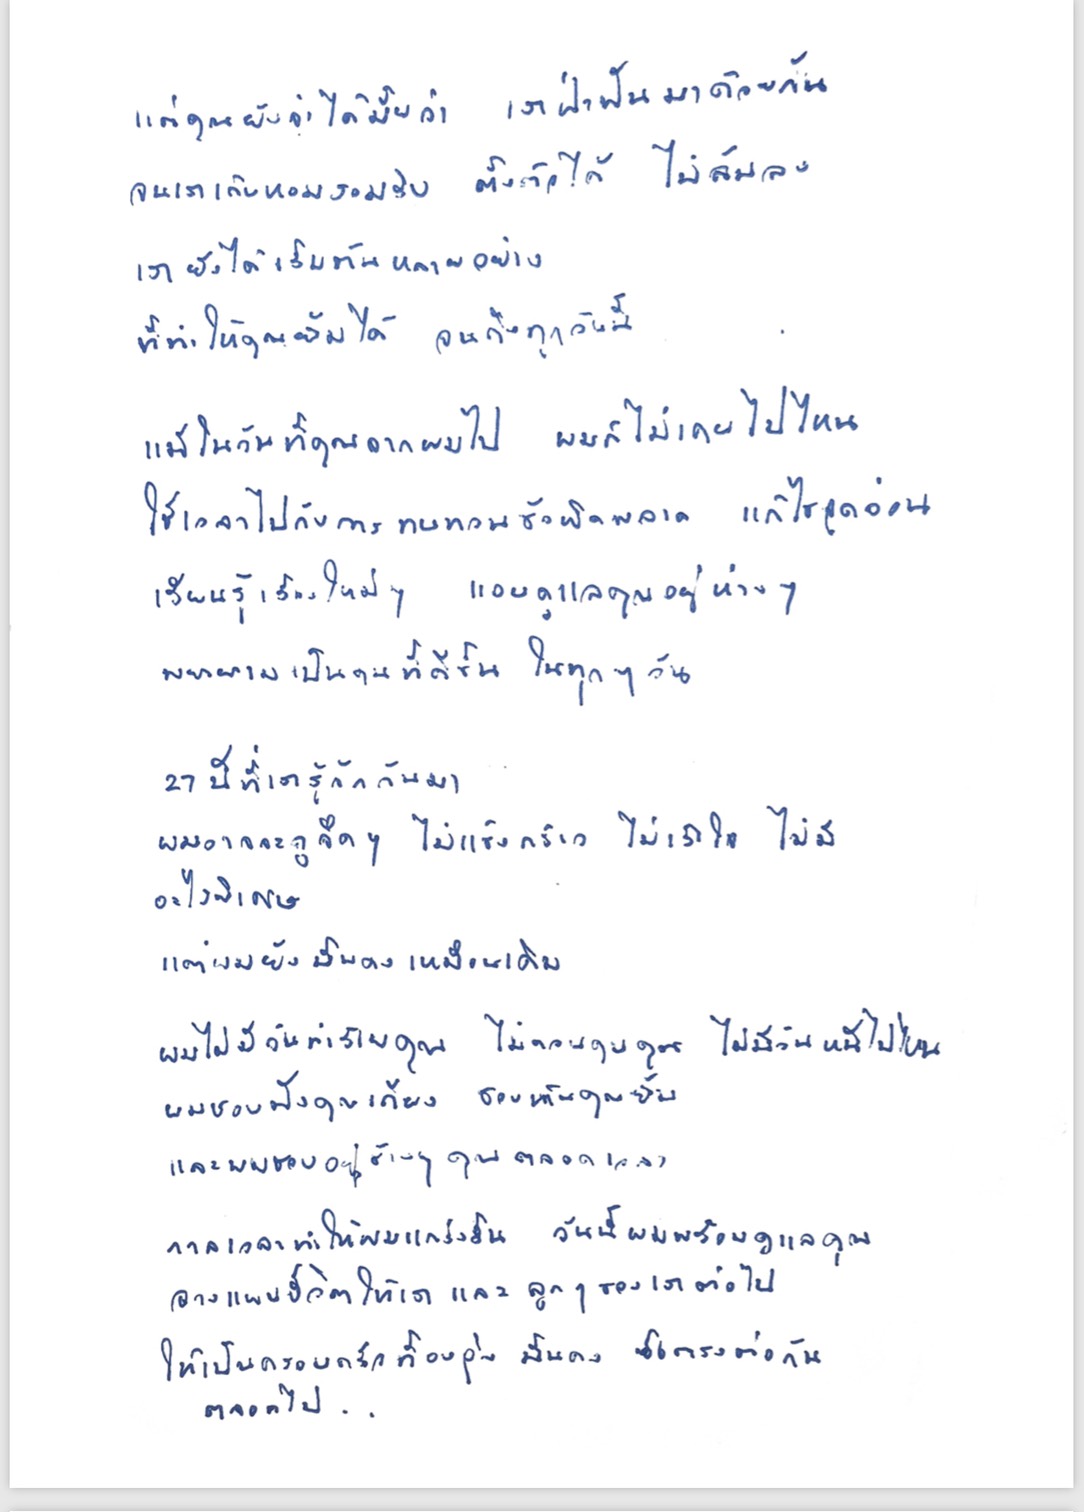 แต่คุณยังจำได้มั้ยว่า เราฝ่าฟันมาด้วยกัน
จนเราเก็บหอมรอมริบ ตั้งตัวได้ ไม่ล้มลง
เรายังได้เริ่มต้นหลายอย่าง
ที่ทำให้คุณยิ้มได้ จนถึงทุกวันนี้
แม้ในวันที่คุณจากผมไป ผมก็ไม่เคยไปไหน
ใช้เวลาไปกับการทบทวนข้อผิดพลาด แก้ไขจุดอ่อน
เรียนรู้เรื่องใหม่ๆ แอบดูแลคุณอยู่ห่างๆ
พยายามเป็นคนที่ดีขึ้น ในทุกๆวัน
27 ปีที่เรารู้จักกันมา
ผมอาจจะดูจืดๆ ไม่แข็งกร้าว ไม่เร้าใจ ไม่มี
อะไรพิเศษ
แต่ผมยังมั่นคงเหมือนเดิม
ผมไม่มีวันทำร้ายคุณ ไม่ควบคุมคุณ ไม่มีวันหนีไปไหน
ผมชอบฟังคุณเถียง ชอบเห็นคุณยิ้ม
และผมชอบอยู่ข้างๆคุณตลอดเวลา
กาลเวลาทำให้ผมแกร่งขึ้น วันนี้ผมพร้อมดูแลคุณ
วางแผนชีวิตให้เรา และ ลูกๆของเราต่อไป
ให้เป็นครอบครัวที่อบอุ่น มั่นคง ซื่อตรงต่อกัน
ตลอดไป . .